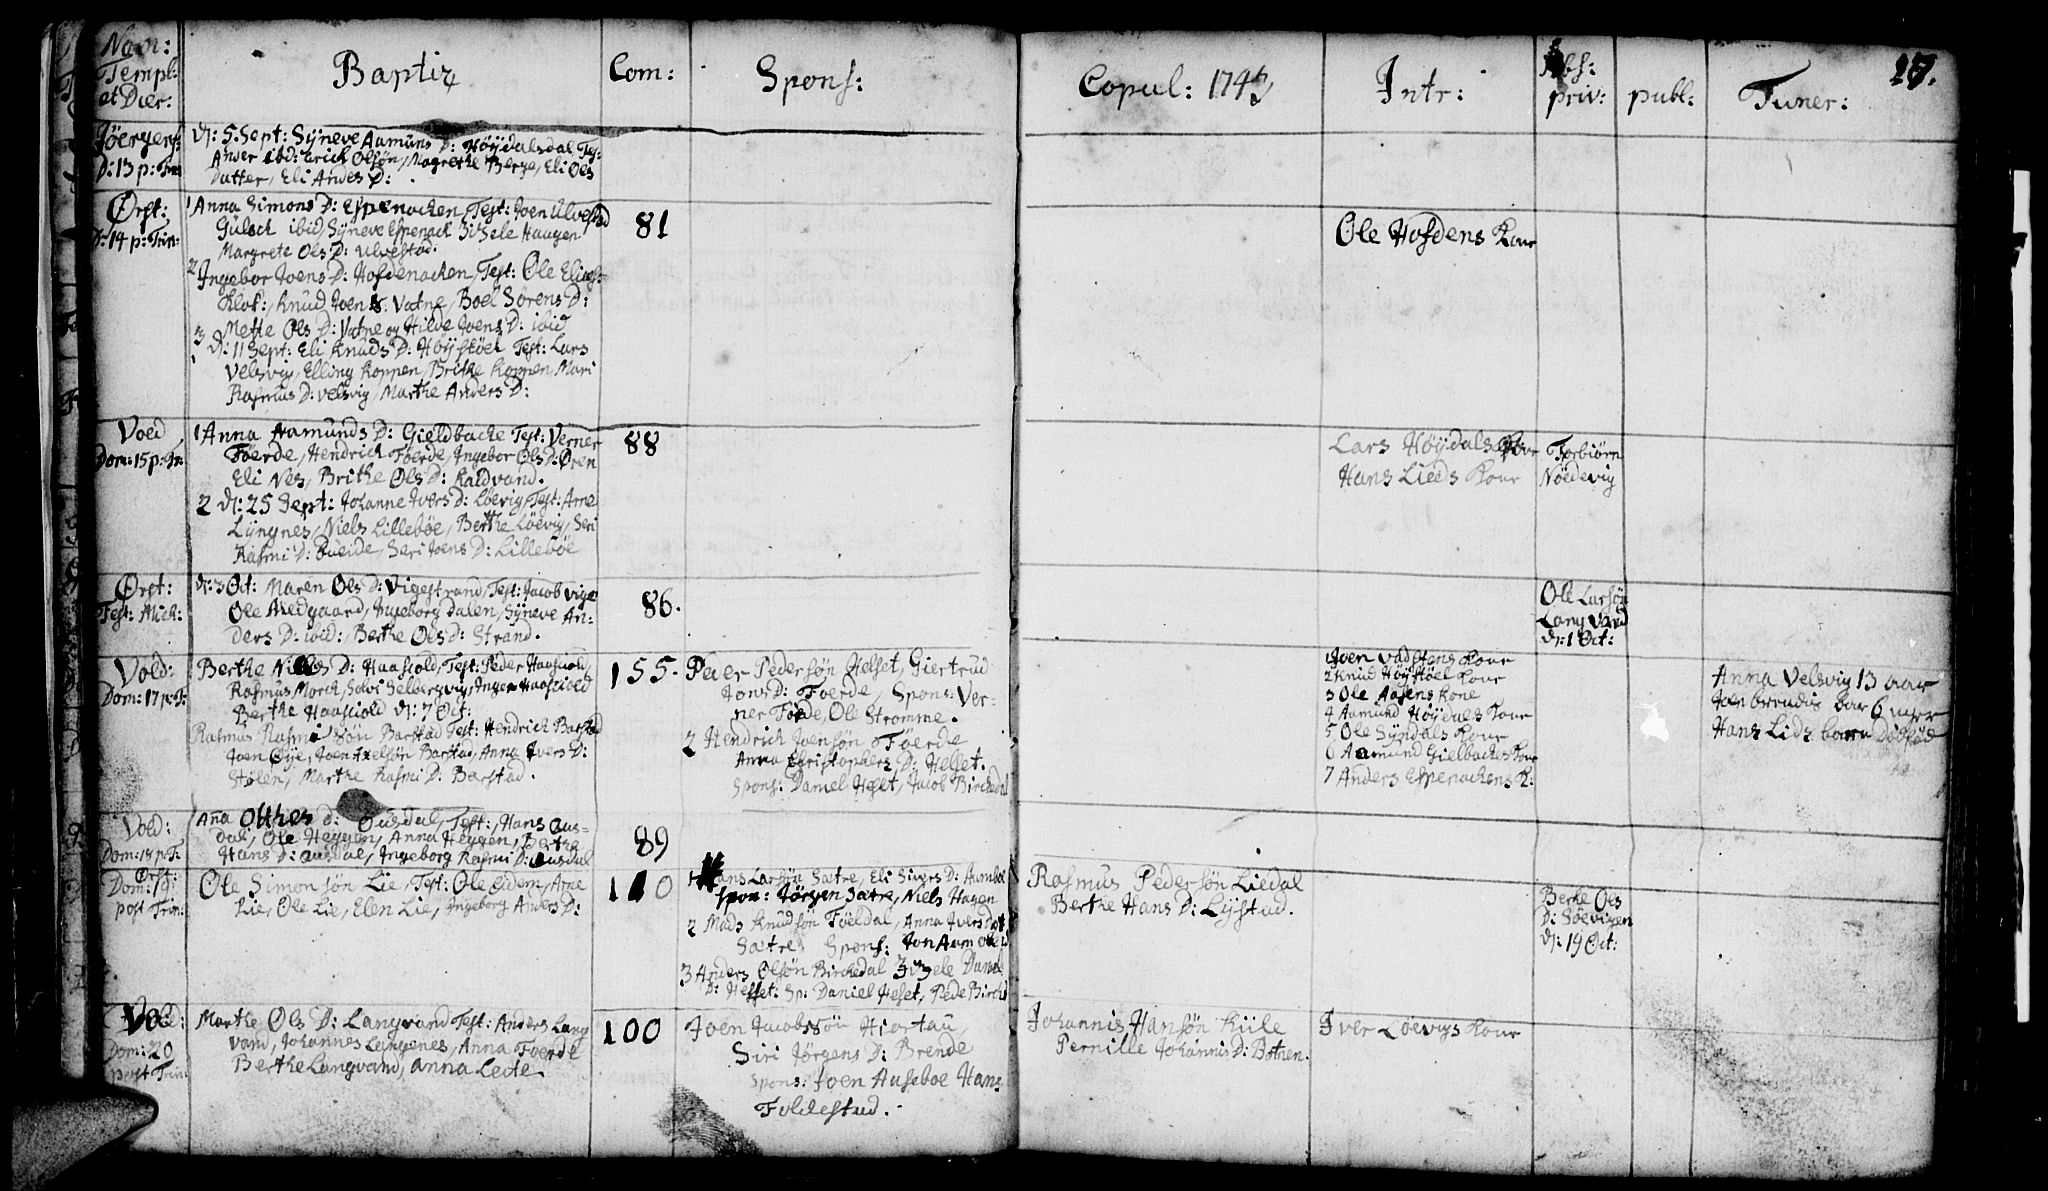 Nom:
Templ:
et Dier:
Baptiz
Com:
Spons:
Copul: 1742
Intr:
Abs:
priv:
publ:
Funer:
17.
Jöergens
D: 13 p: Trin
d: 5. Sept: Syneve Aamuns D: Höydalsdal Test:
Ander ibid: Erich Olsön, Magrethe Berge, Eli Ols
Datter, Eli Anders D:
Örst:
D: 14 p: Trin:
1 Anna Simons D: Espenacken, Test: Joen Ulvestad
Gulsch ibid, Syneve Espenack Zidsele Haagen
Margrete Ols D: Ulvestad.
2 Ingebor Joens D: Hofdenacken, Test: Ole Elias:
Klok:, Knud Joen S. Vatne, Boel Sörens D:
Mette Ols D: Vatne og Hilde Joens D: ibid
3 d: 11 Sept: Eli Knuds D: Höystöel Test: Lars
Velsvig, Elling Koppen, Brithe Koppen, Mari
Rasmus D: Velsvig, Marthe Anders D:
81
Ole Hofdens Kone
Voed
Dom: 15 p: Tr:
1 Anna Aamunds D: Gieldbacke Test: Verner
Föerde, Hendrich Föerde, Ingebor Ols D: Ören
Eli Nes, Brithe Ols D: Kaldvand.
2 d: 25 Sept: Johanne Ivers D: Löevig, Test: Arne
Lyngnes, Niels Lilleböe, Berthe Löevig, Seri
Rasmi D: Bueide, Seri Joens D: Lilleböe
88
Lars Höydals Kone
Hans Lieds Kone
Torbiörn
Nöedevig
Örst:
Fest: Mich:
d: 3 Oct: Maren Ols D: Vigestrand, Test: Jacob Vige
Ole Medgaard, Ingeborg Dalen, Syneve An-
ders D: ibid:, Berthe Ols D: Strand.
86.
Ole Larsön
Langvand
d: 1 Oct:
Vold:
Dom: 17 p: T:
Berthe Niels D: Haaskiold, Test: Peder Haaskiold,
Rasmus Morch, Solvi Selbergsvig, Inger Haaskiold
Berthe Haaskiold d: 7 Oct:
Rasmus Rasmi Sön Barstad Test: Hendrich Barstad
Joen Öÿe, Joen Axelsön Barstad, Anna Ivers D:
Stölen, Marthe Rasmi D: Barstad.
155.
Peder Pedersön Helset, Giertrud
Jons D: Foerde, Spons: Ver-
ner Förde, Ole Stromme.
2 Hendrich Joensön Föerde
Anna Christophers D: Helset.
Spons: Daniel Heset, Jacob Birckedal
1 Joen Vadstens Kone
2 Knud Höystöel Kone
3 Ole Aasens Kone
4 Aamund Höydals Kone
5 Ole Syndals Kone
6 Aamund Gielbackes Kone
7 Anders Espenackens K:
Anna Velsvig 13 aar
Joen brendis bar 6 uger
Hans Lids barn Dödföd
Voed:
Dom: 18 p: T:
Ana Olthes D: Ousdal, Test:, Hans Aus-
dal, Ole Heggen, Anna Heggen, Berthe
Hans D: Ausdal, Ingeborg Rasmi D: Ausdal
89
Örst:
Dom: 19:
post Trin:
Ole Simonsön Lie, Test: Ole Eidem, Arne
Lie, Ole Lie, Elen Lie, Ingeborg Anders D:
110
1 Hans Larsön Sætre, Eli Sivers D: Humbol
Spon: Jörgen Satre, Niels Hagen
2 Mads Knudsön Föeldal, Anna Ivers Dot
Sætre Spons: Jon Aamolid
3 Anders Olsön Birckedal Zidsele Daniel
D: Hesset: Sp: Daniel Heset, Pede Birckd
Rasmus Pedersön Liedal
Berthe Hans D: Lystad.
Berte Ols
D: Söevigen
d: 19 Oct:
Vold:
Dom: 20
post Trin:
Marthe Ols D: Langvand Test: Anders Lang
vand, Johannes Lyngenes, Anna Foerde
Berthe Langvand, Anna Leite.
100
Joen Jacobsön Hiortau,
Siri Jörgens D: Brende
Spons: Joen Auseboe Hans
Folckestad.
Johannis Hansön Kiile
Pernille Johannis D: Botnen.
Iver Löevigs Kone